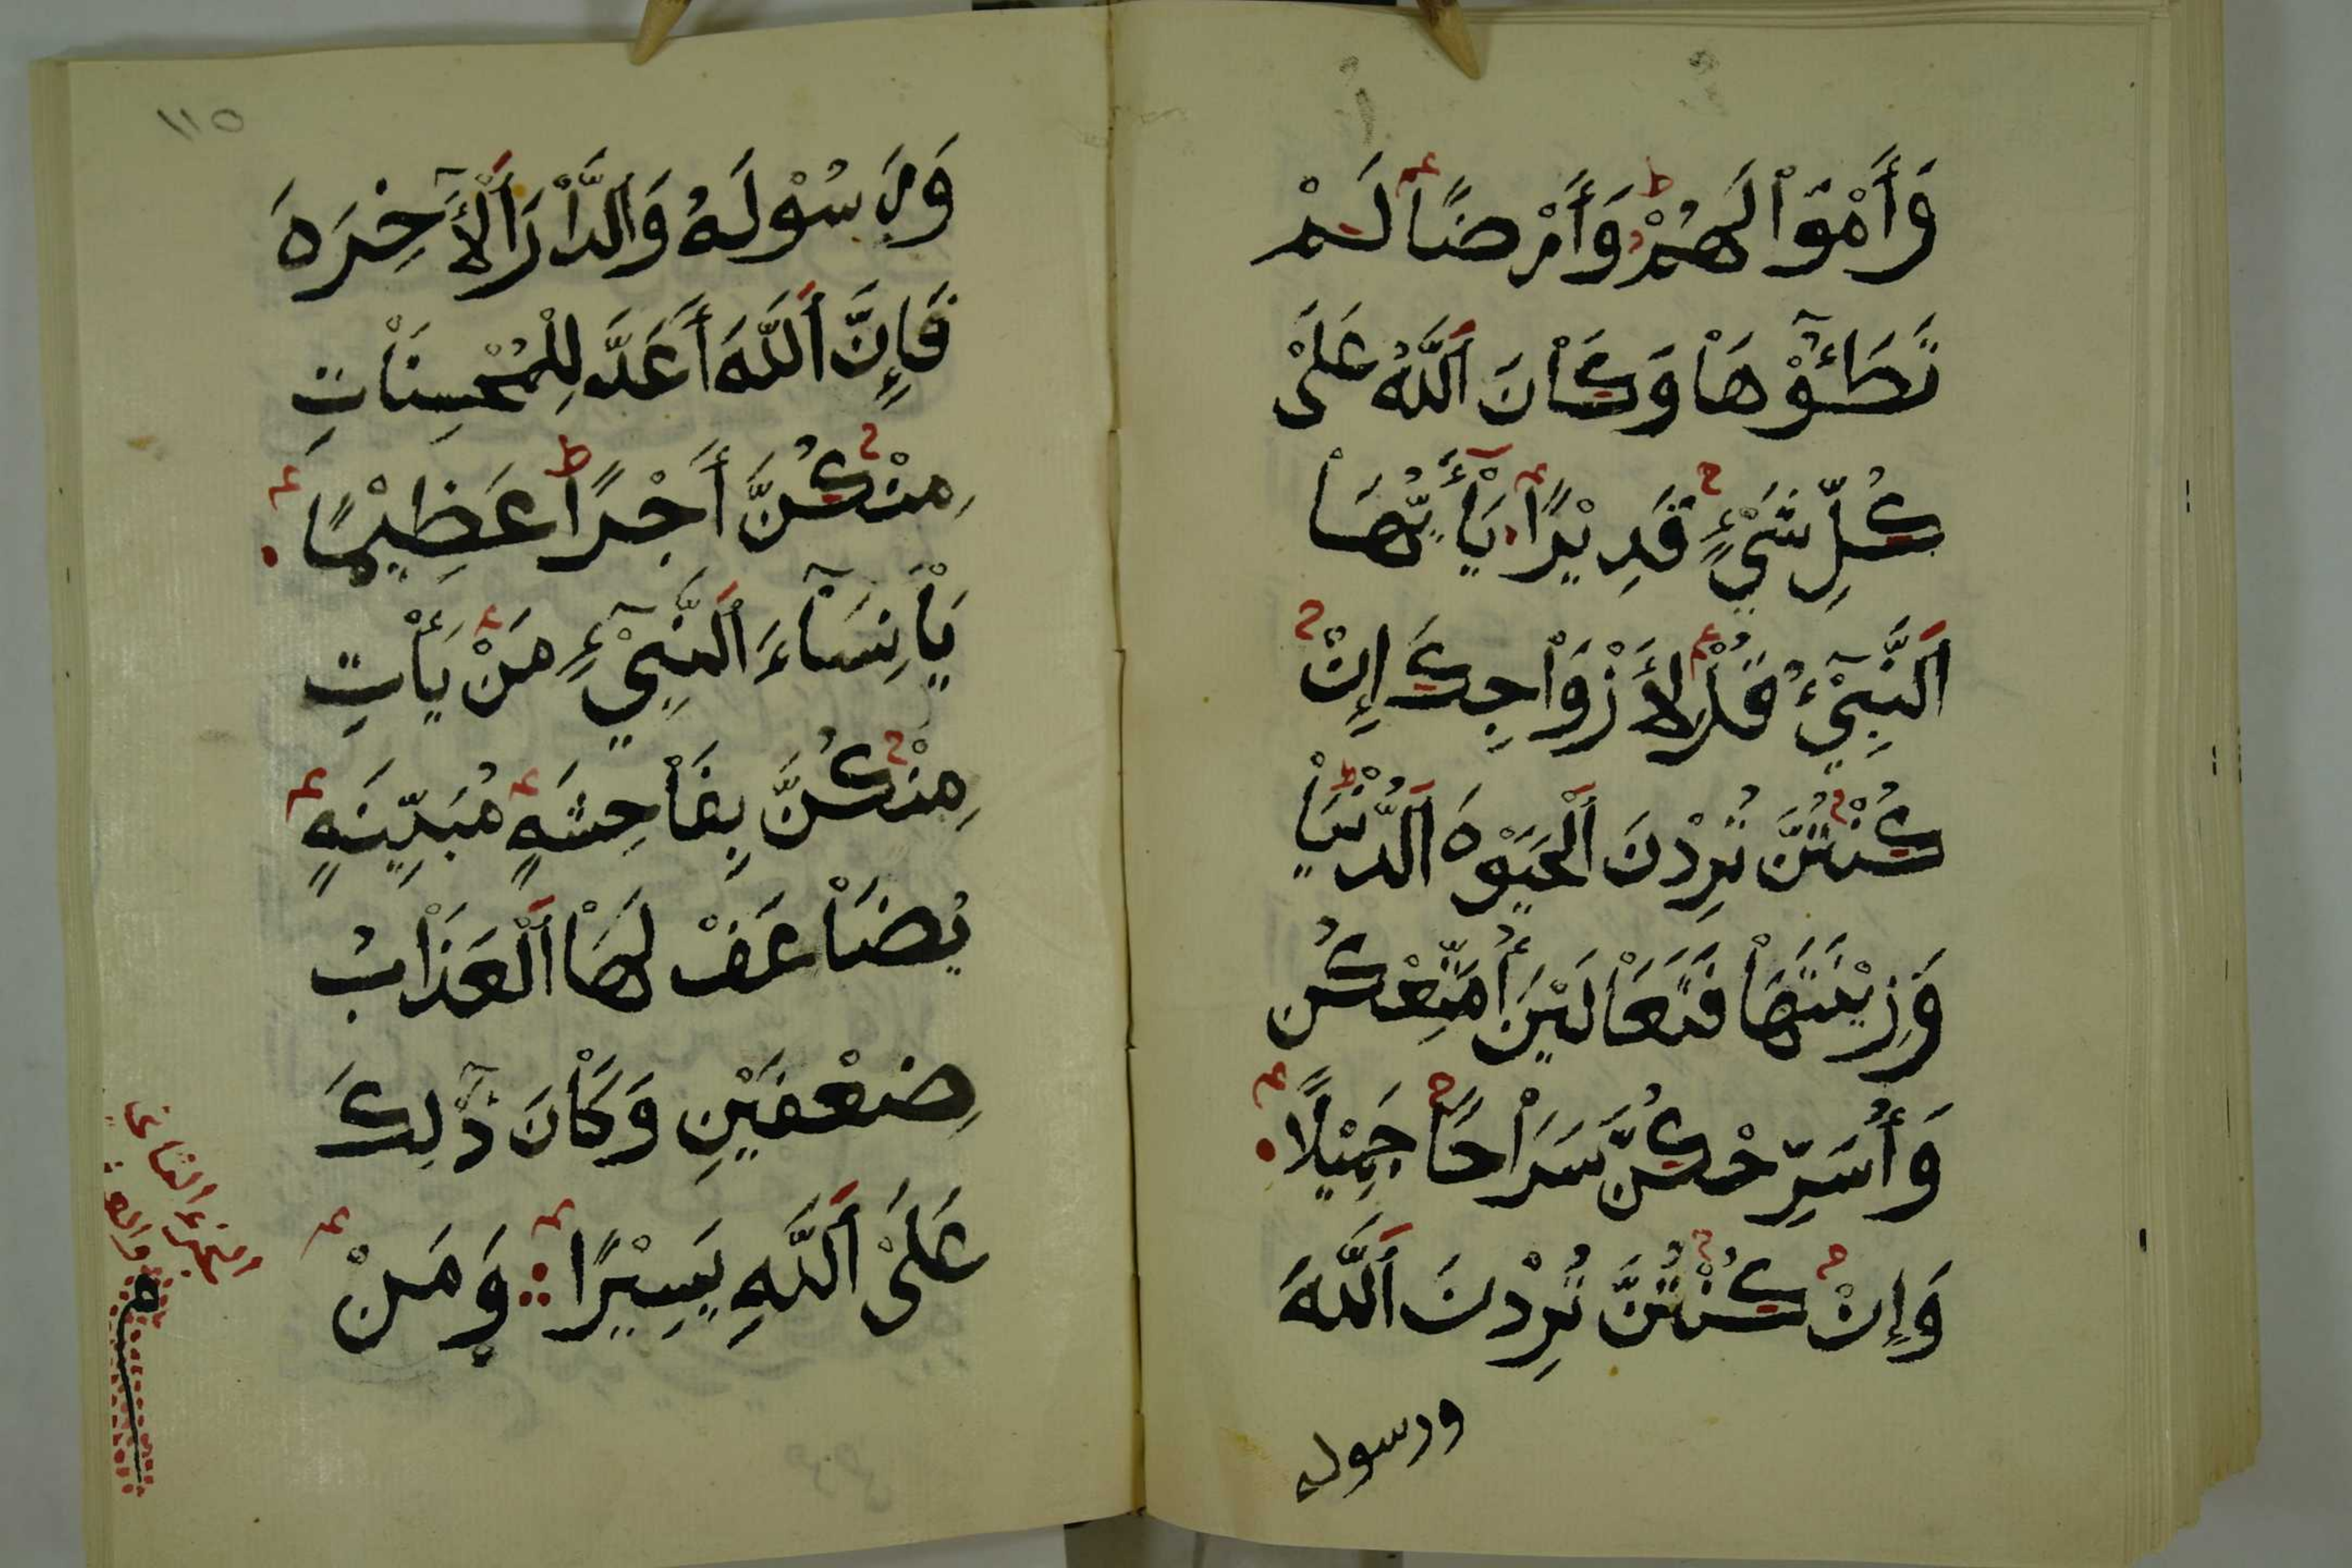 وَأَمْوَٰا لَهُمْ وَأَرْضًا لَمْ
تَطَـُٔوْهَا وَكَانَ ٱللَّهُ عَلَىٰ
كُلِّ شَيْءٍ قَدِيْرًا يَٰأَيُّهَا
ٱلنَّبِيْٓءُ قُلْ لِأَزْوَاجِكَ إِنْ
كُنْتُنَّ تُرِدْنَ ٱلْحَيَوٰةَ ٱلدُّنْيَا
وَزِيْنَتَهَا فَتَعَالَيْنَ أُمَتِّعْكُن
وَأُسَرِّحْكُنَّ سَرَاحًا جَمِيْلًا
وَإِنْ كُنْتُنَّ تُرِدْنَ ٱللَّهَ
ورسوله
١١٥
وَرَسُوْلَهُ وَٱلدَّارَ ٱلْأَٓخِرَهَ
فَإِنَّ ٱللَّهَ أَعَدَّ لِلْمُحْسِنَاتِ
مِنْكُنَّ أَجْرًا عَظِيْمًا
يَا نِسَآءَ ٱلنَّبِيْٓءِ مَنْ يَأْتِ
مِنْكُنَّ بِفَاحِشَهٍ مُبَيِّنَهٍ
يُضَاعَفْ لَهَا ٱلْعَذَابُ
ضِعْفَيْنِ وَكَانَ ذَٰلِكَ
عَلَى ٱللَّهِ يَسِيْرًا وَمَنْ
الجزء الثاني